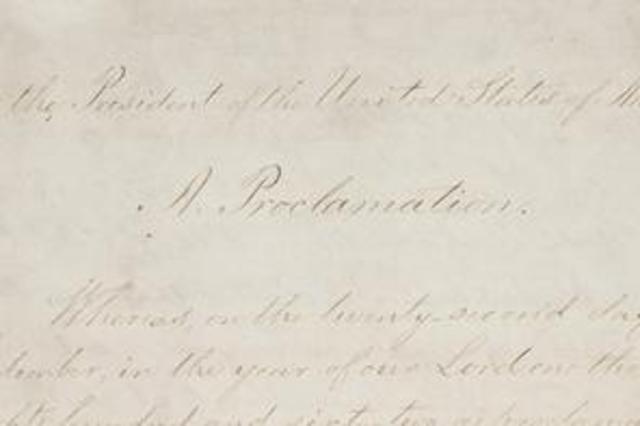 the President of the United States of
A Proclamation.
Whereas, on the twenty-second day
tember, in the year of our Lord one tho
hundred and sixty two a proclama